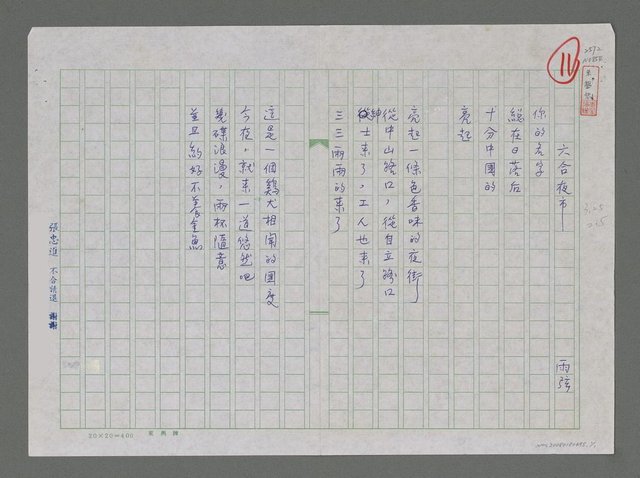 六合夜市 雨弦
你的名字
總在日落后
十分中國的
亮起
亮起一條色香味的夜街
從中山路口，從自立路口
紳士來了，工人也來了
三三兩兩的來了
這是一個雞犬相聞的國度
今夜，就來一道悠然吧
幾碟浪漫，兩杯隨意
並且約好不養金魚
張忠進 不合請退 謝謝
20×20=400
11